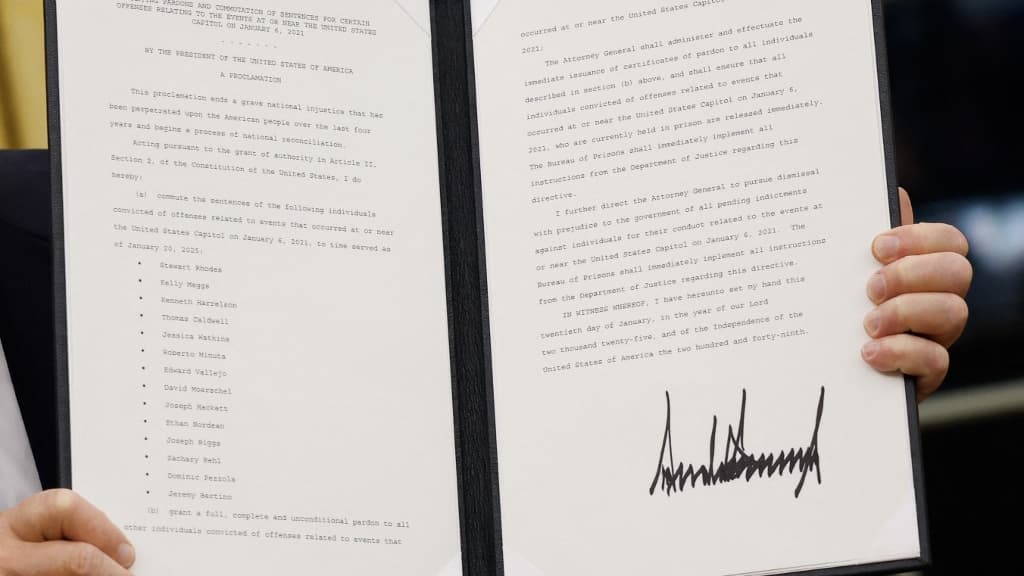 GRANTING PARDONS AND COMMUTATION OF SENTENCES FOR CERTAIN
OFFENSES RELATING TO THE EVENTS AT OR NEAR THE UNITED STATES
CAPITOL ON JANUARY 6, 2021
- - - - - - -
BY THE PRESIDENT OF THE UNITED STATES OF AMERICA
A PROCLAMATION
This proclamation ends a grave national injustice that has
been perpetrated upon the American people over the last four
years and begins a process of national reconciliation.
Acting pursuant to the grant of authority in Article II,
Section 2, of the Constitution of the United States, I do
hereby:
(a) commute the sentences of the following individuals
convicted of offenses related to events that occurred at or near
the United States Capitol on January 6, 2021, to time served as
of January 20, 2025:
• Stewart Rhodes
• Kelly Meggs
• Kenneth Harrelson
• Thomas Caldwell
• Jessica Watkins
• Roberto Minuta
• Edward Vallejo
• David Moerschel
• Joseph Hackett
• Ethan Nordean
• Joseph Biggs
• Zachary Rehl
• Dominic Pezzola
• Jeremy Bertino
(b) grant a full, complete and unconditional pardon to all
other individuals convicted of offenses related to events that
occurred at or near the United States Capitol
2021;
The Attorney General shall administer and effectuate the
immediate issuance of certificates of pardon to all individuals
described in section (b) above, and shall ensure that all
individuals convicted of offenses related to events that
occurred at or near the United States Capitol on January 6,
2021, who are currently held in prison are released immediately.
The Bureau of Prisons shall immediately implement all
instructions from the Department of Justice regarding this
directive.
I further direct the Attorney General to pursue dismissal
with prejudice to the government of all pending indictments
against individuals for their conduct related to the events at
or near the United States Capitol on January 6, 2021. The
Bureau of Prisons shall immediately implement all instructions
from the Department of Justice regarding this directive.
IN WITNESS WHEREOF, I have hereunto set my hand this
twentieth day of January, in the year of our Lord
two thousand twenty-five, and of the Independence of the
United States of America the two hundred and forty-ninth.